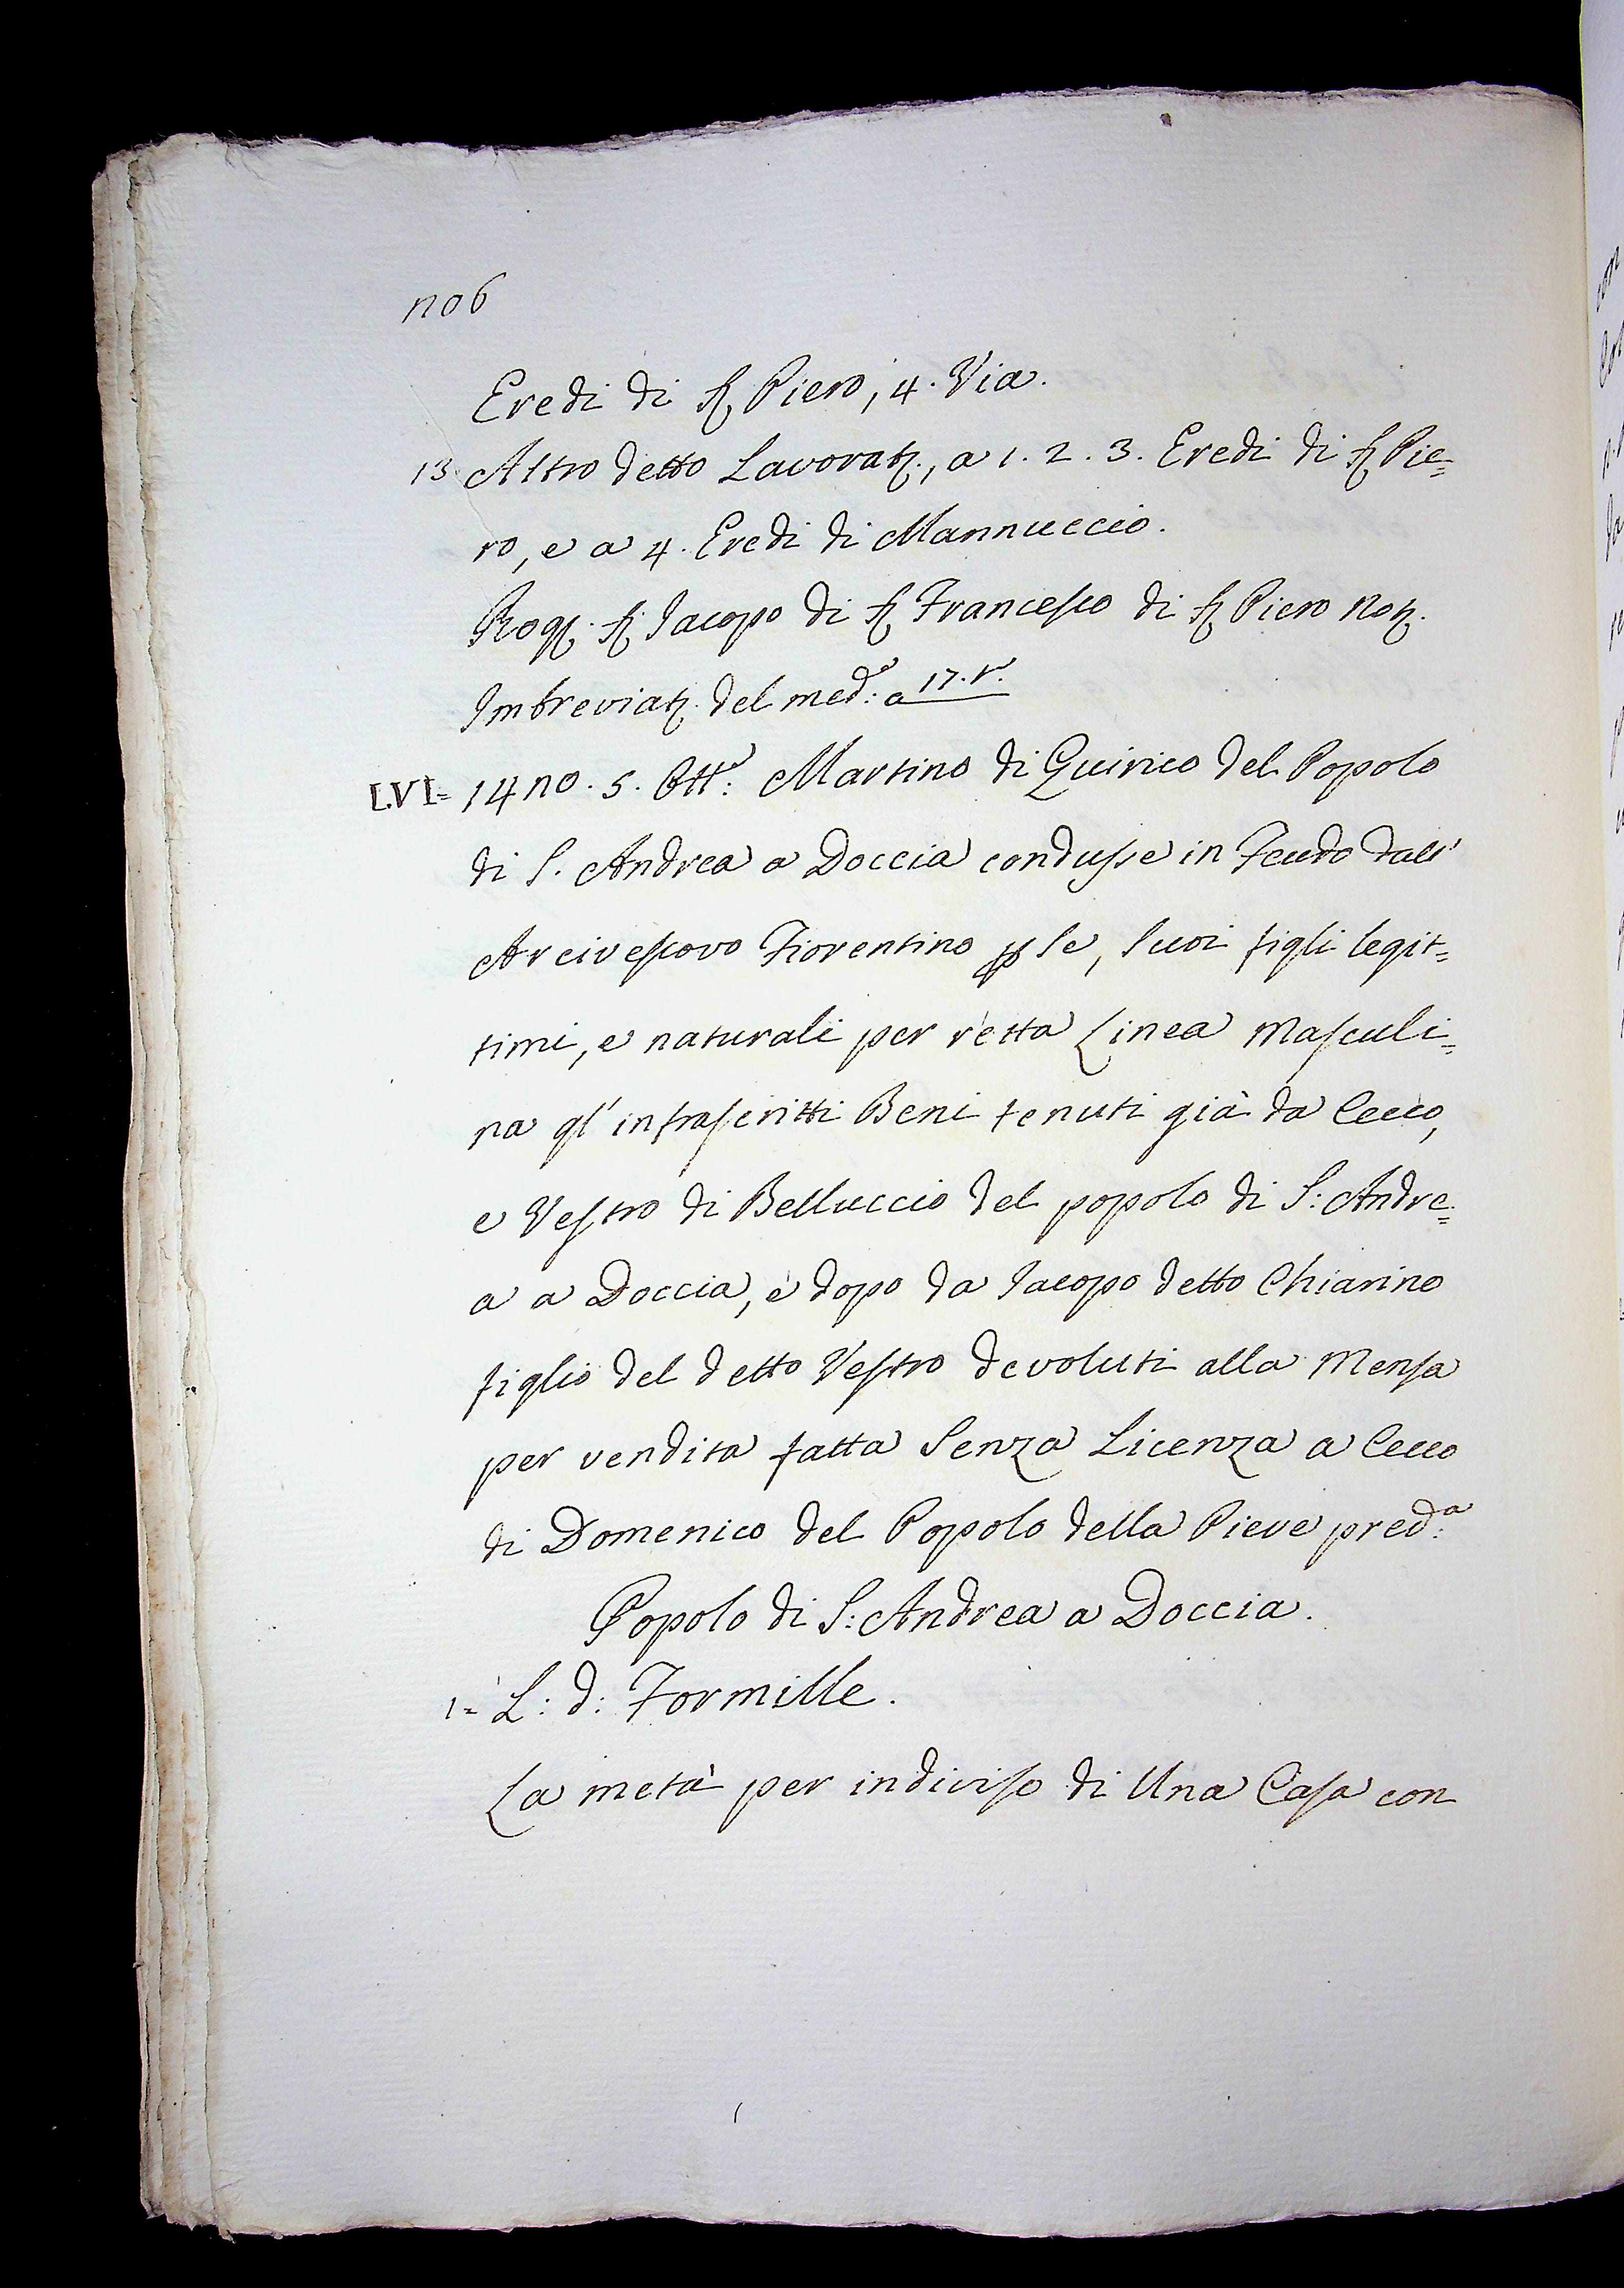 no6
Eredi di ſ Piero, 4. Via.
13. Altro detto Lavorat., a 1. 2. 3. Eredi di ſ Pie=
ro, e a 4. Eredi di Mannuccio.
Rog. ſ Iacopo di ſ Franceſco di ſ Piero Not.
Imbreviat. del med:º a 17. rº
LVI= 14no. 5. Ottº: Martino di Quirico del Popolo
di S. Andrea a Doccia conduſse in Feudo dall'
Arciveſcovo Fiorentino p Se, Suoi figli legit=
timi, e naturali per retta Linea Maſculi=
na gl'infraſcritti Beni tenuti già da Cecco,
e Veſtro di Belluccio del popolo di S: Andre=
a a Doccia, e dopo da Iacopo detto Chiarino
figlio del detto Veſtro devoluti alla Menſa
per vendita fatta Senza Licenza a Cecco
di Domenico del Popolo della Pieve pred:ª
Popolo di S: Andrea a Doccia.
1= L: d: Formille.
La metà per indiviſo di Una Caſa con